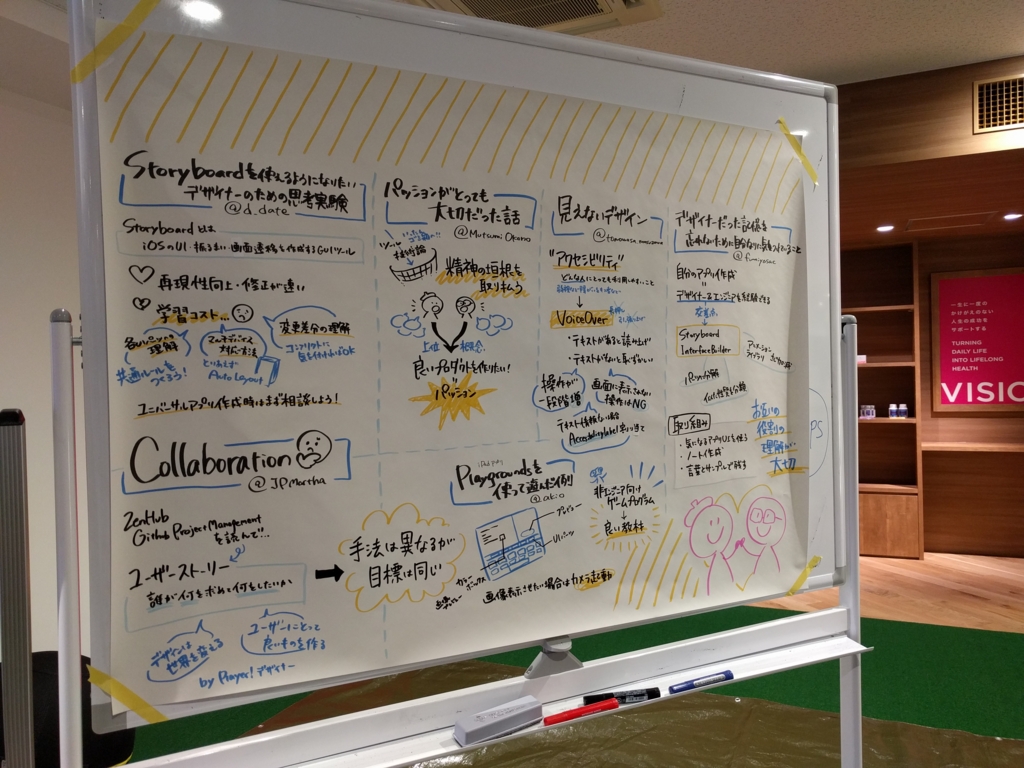 Storyboardを使えるようになりたい
デザイナーのための思考実験
@d_date
Storyboard とは
iOSのUI・振るまい・画面遷移を作成するGUIツール
再現性向上・修正が速い
学習コスト…
各パーツの
理解
マルチデバイス
対応方法
変更差分の理解
コンフリクトに
気を付ければOK
共通ルールを
つくろう!
とりあえず
Auto Layout
ユニバーサルアプリ作成時はまず相談しよう!
パッションがとっても
大切だった話
@Mutsumi Okano
技術論
精神の垣根を
取り払う
上位 概念
良いプロダクトを作りたい!
パッション
見えないデザイン
"アクセシビリティ"
VoiceOver
・テキストがあると読み上げ
・テキストがないと再生しない
操作が
一段階増
画面に表示されない
操作はNG
テキスト情報ない場合
Accessibility label
デザイナーだった記憶を
忘れないために
自分のアプリ作成
デザイナー&エンジニアを経験できる
Storyboard
InterfaceBuilder
アニメーション
ライブラリ
取り組み
・気になるアプリUIを使う
・ノート作成
・言葉とサンプルで残る
お互いの
役割の
理解が
大切
PS
Collaboration
@JPMartha
ZenHub
Github Project Management
を読んで…
ユーザーストーリー
誰が何を求めて何をしたいか
デザインは
世界を変える
ユーザーにとって
良いものを作る
by Player! デザイナー
手法は異なるが
目標は同じ
Playgroundsを
使って遊んだ
@akio
UIパーツ
画像表示させたい場合はカメラ起動
非エンジニア向け
ゲームプログラム
良い教材
一生に一度の
かけがえのない
人生の成功を
サポートする
TURNING
DAILY LIFE
INTO LIFELONG
HEALTH
VISIO